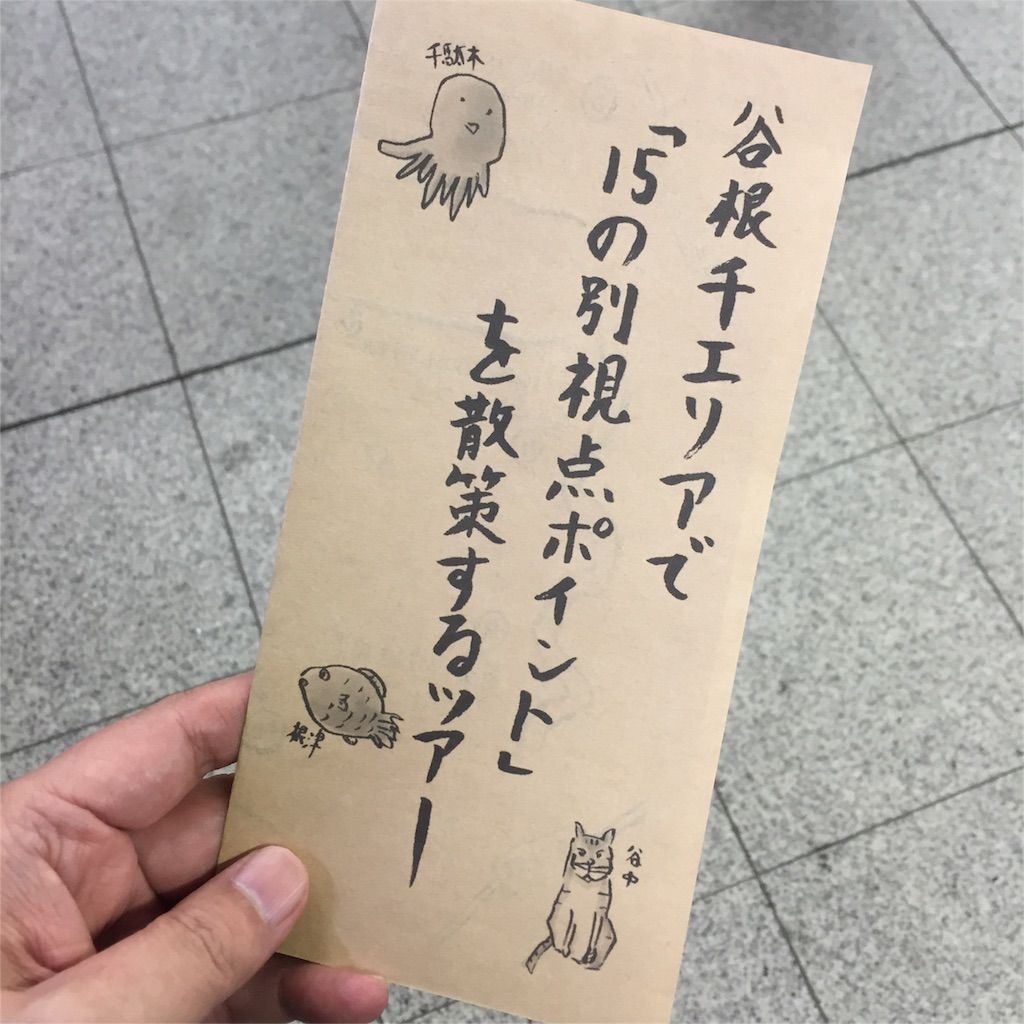 谷根千エリアで
「15の別視点ポイント」
を散策するツアー
千駄木
根津
谷中